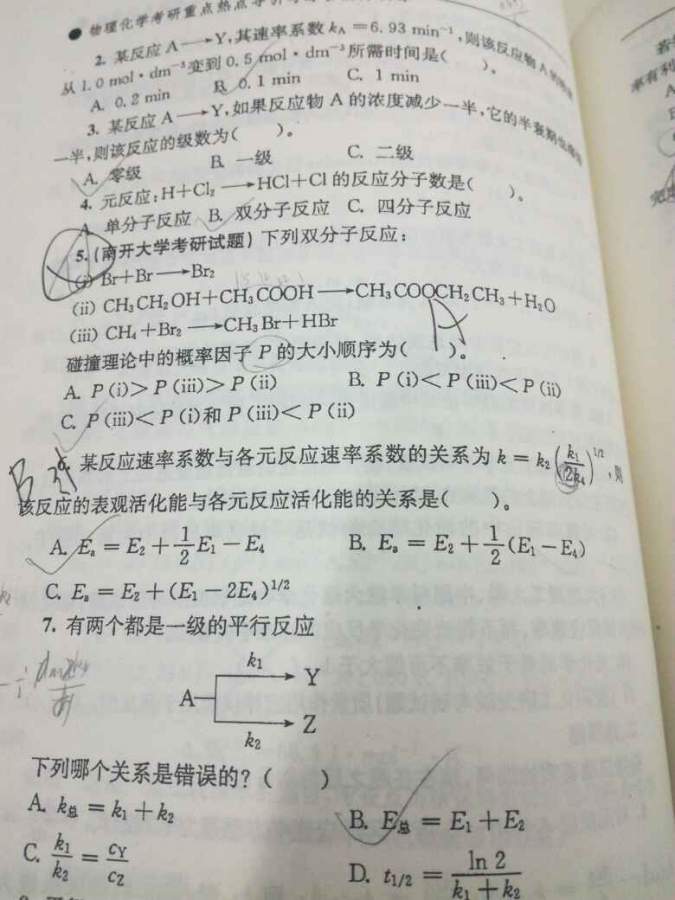 ● 物理化学考研重点热点
2. 某反应 A⟶Y,其速率系数 kA=6.93 min⁻¹,则该反应物 A 的
从 1.0 mol·dm⁻³变到 0.5 mol·dm⁻³所需时间是( )。
A. 0.2 min B. 0.1 min C. 1 min
3. 某反应 A⟶Y,如果反应物 A 的浓度减少一半,它的半衰期
一半,则该反应的级数为( )。
A. 零级 B. 一级 C. 二级
4. 元反应:H+Cl₂⟶HCl+Cl 的反应分子数是( )。
A. 单分子反应 B. 双分子反应 C. 四分子反应
5. (南开大学考研试题) 下列双分子反应:
(i) Br+Br⟶Br₂
(ii) CH₃CH₂OH+CH₃COOH⟶CH₃COOCH₂CH₃+H₂O
(iii) CH₄+Br₂⟶CH₃Br+HBr
碰撞理论中的概率因子 P 的大小顺序为( )。
A. P(i)>P(iii)>P(ii) B. P(i)<P(iii)<P(ii)
C. P(iii)<P(i)和 P(iii)<P(ii)
6. 某反应速率系数与各元反应速率系数的关系为 k=k₂(k₁/2k₄)^1/2,则
该反应的表观活化能与各元反应活化能的关系是( )。
A. Eₐ=E₂+1/2E₁−E₄ B. Eₐ=E₂+1/2(E₁−E₄)
C. Eₐ=E₂+(E₁−2E₄)^1/2
7. 有两个都是一级的平行反应
k₁ Y
A
k₂ Z
下列哪个关系是错误的?( )
A. k总=k₁+k₂ B. E总=E₁+E₂
C. k₁/k₂=cY/cZ D. t1/2=ln 2/(k₁+k₂)